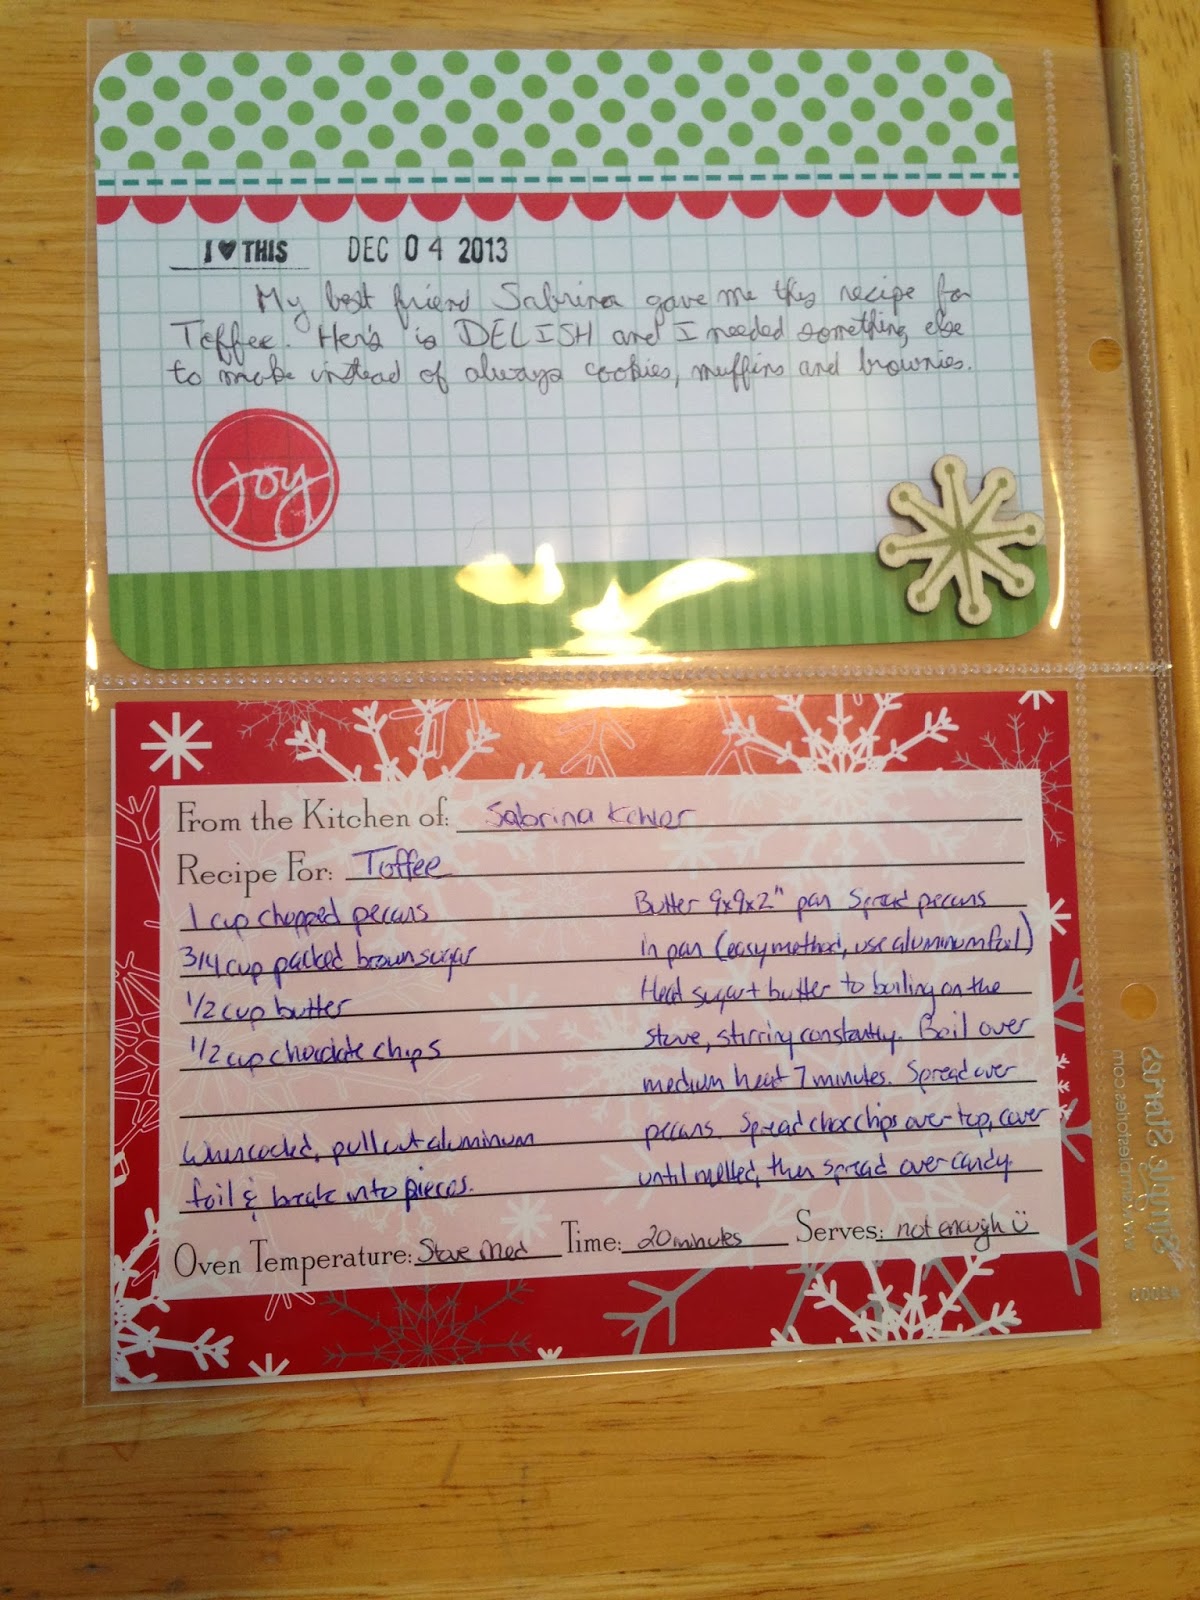 I ♥ THIS DEC 04 2013
My best friend Sabrina gave me this recipe for
Toffee. Hers is DELISH and I needed something else
to make instead of always cookies, muffins and brownies.
Joy
From the Kitchen of: Sabrina
Recipe For: Toffee
1 cup chopped pecans
3/4 cup packed brown sugar
1/2 cup butter
1/2 cup chocolate chips
When cooled, pull out aluminum
foil & break into pieces.
Butter 9x9x2" pan Spread pecans
in pan (easy method, use aluminum foil)
Heat sugar + butter to boiling on the
stove, stirring constantly. Boil over
medium heat 7 minutes. Spread over
pecans. Spread choc chips over top, cover
until melted, then spread over candy.
Oven Temperature: Stove Med Time: 20 minutes Serves: not enough ü
Simple Stories
www.simplestories.com